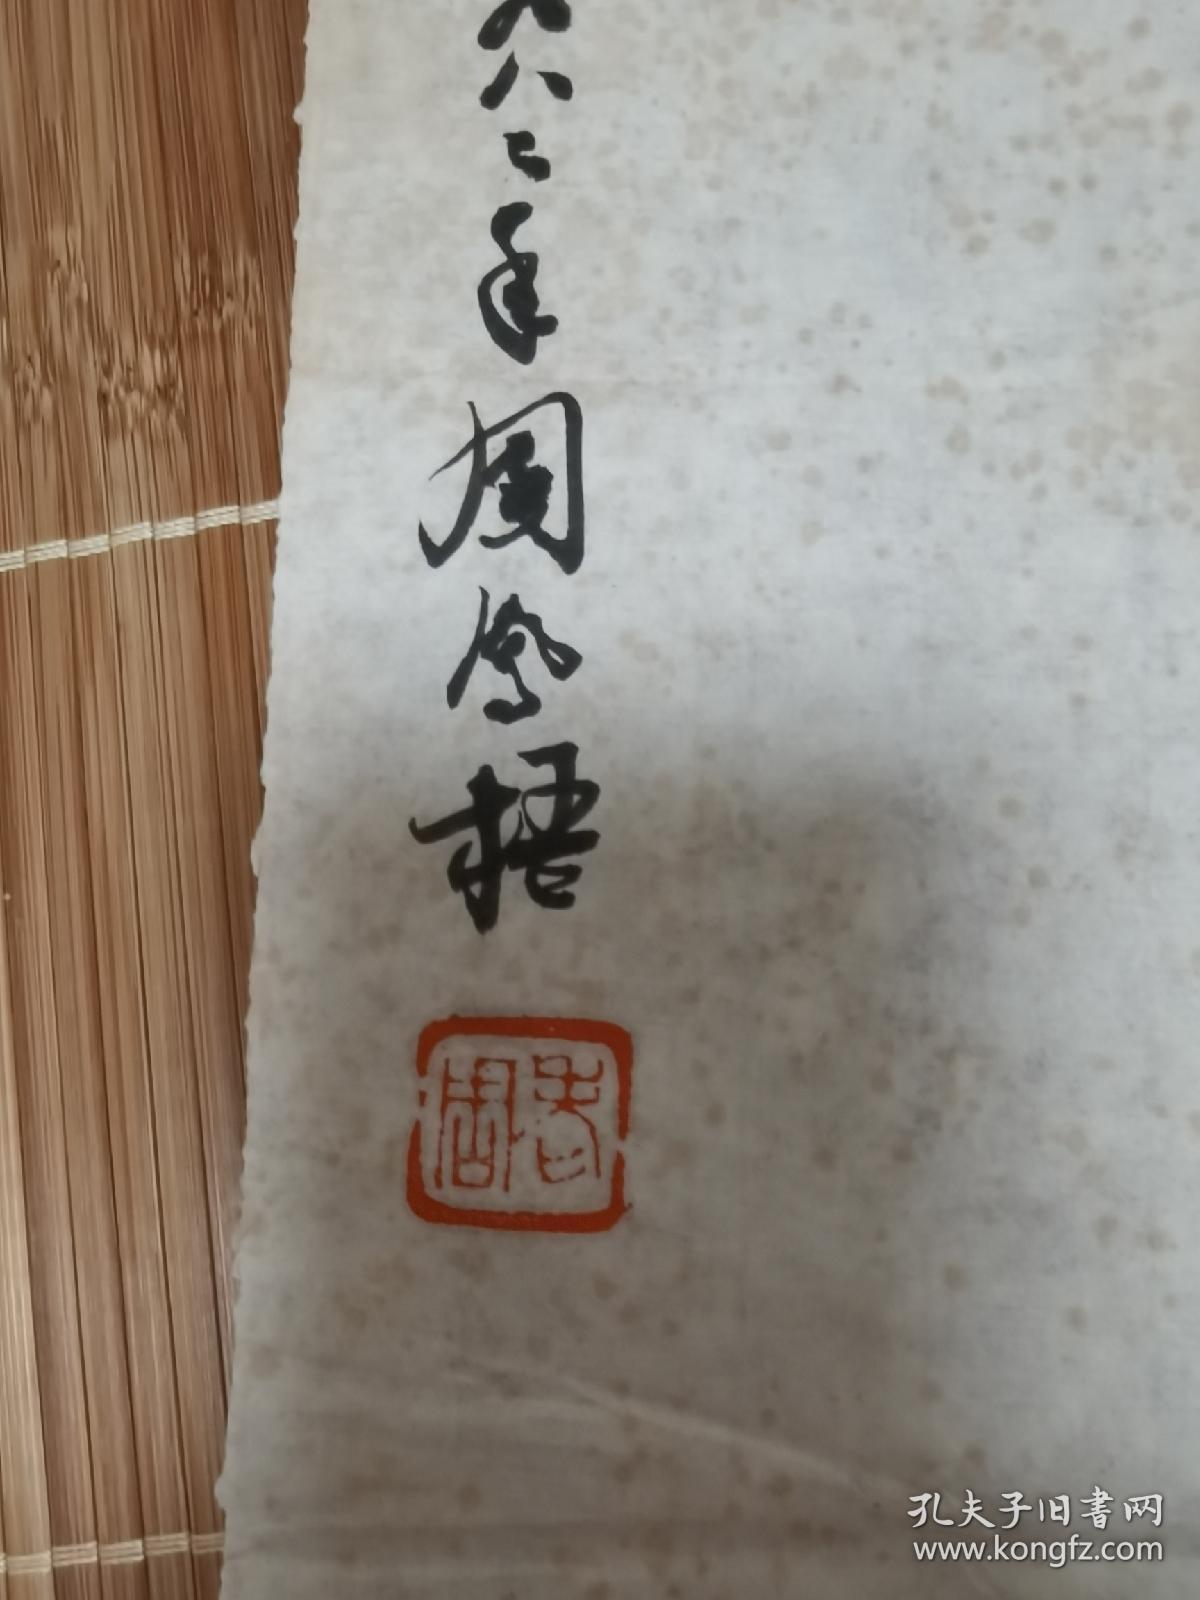 九八二年周鳳梧
老周
孔夫子旧書网
www.kongfz.com